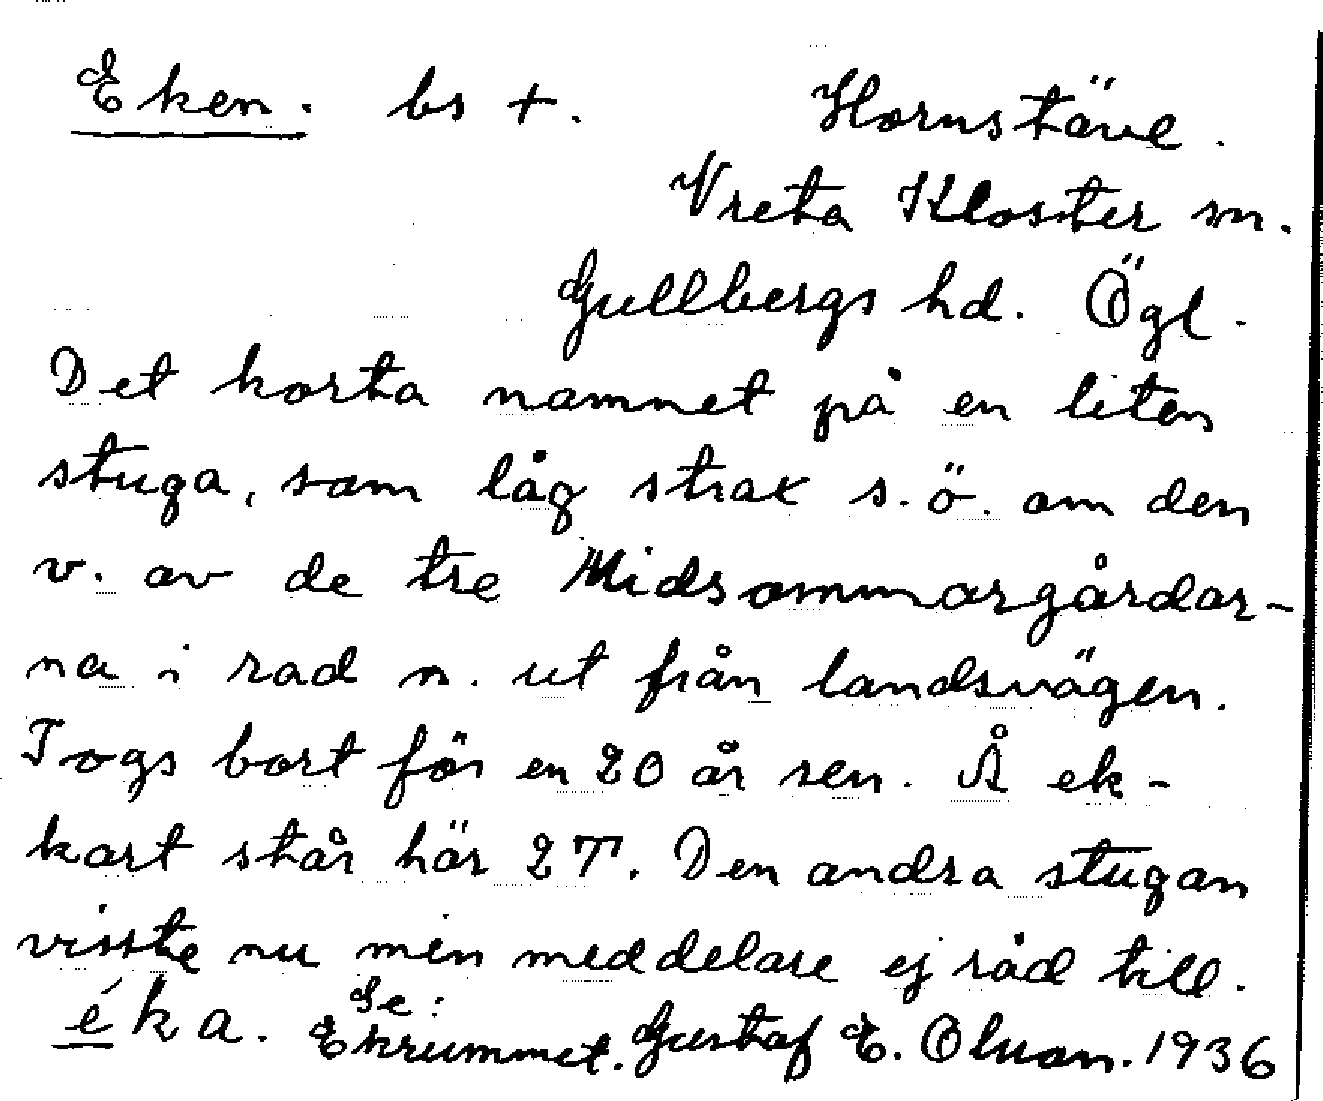 Eken. bs +. Hornstäve.
Vreta Kloster sn.
Gullbergs hd. Ögl.
Det korta namnet på en liten
stuga, som låg strax s.ö. om den
v. av de tre Midsommargårdar-
na i rad n. ut från landsvägen.
Togs bort för en 20 år sen. Å ek-
kart står här 2 T. Den andra stugan
visste nu min meddelare ej råd till.
éka. Se: Ekrummet. Gustaf E. Olsson. 1936